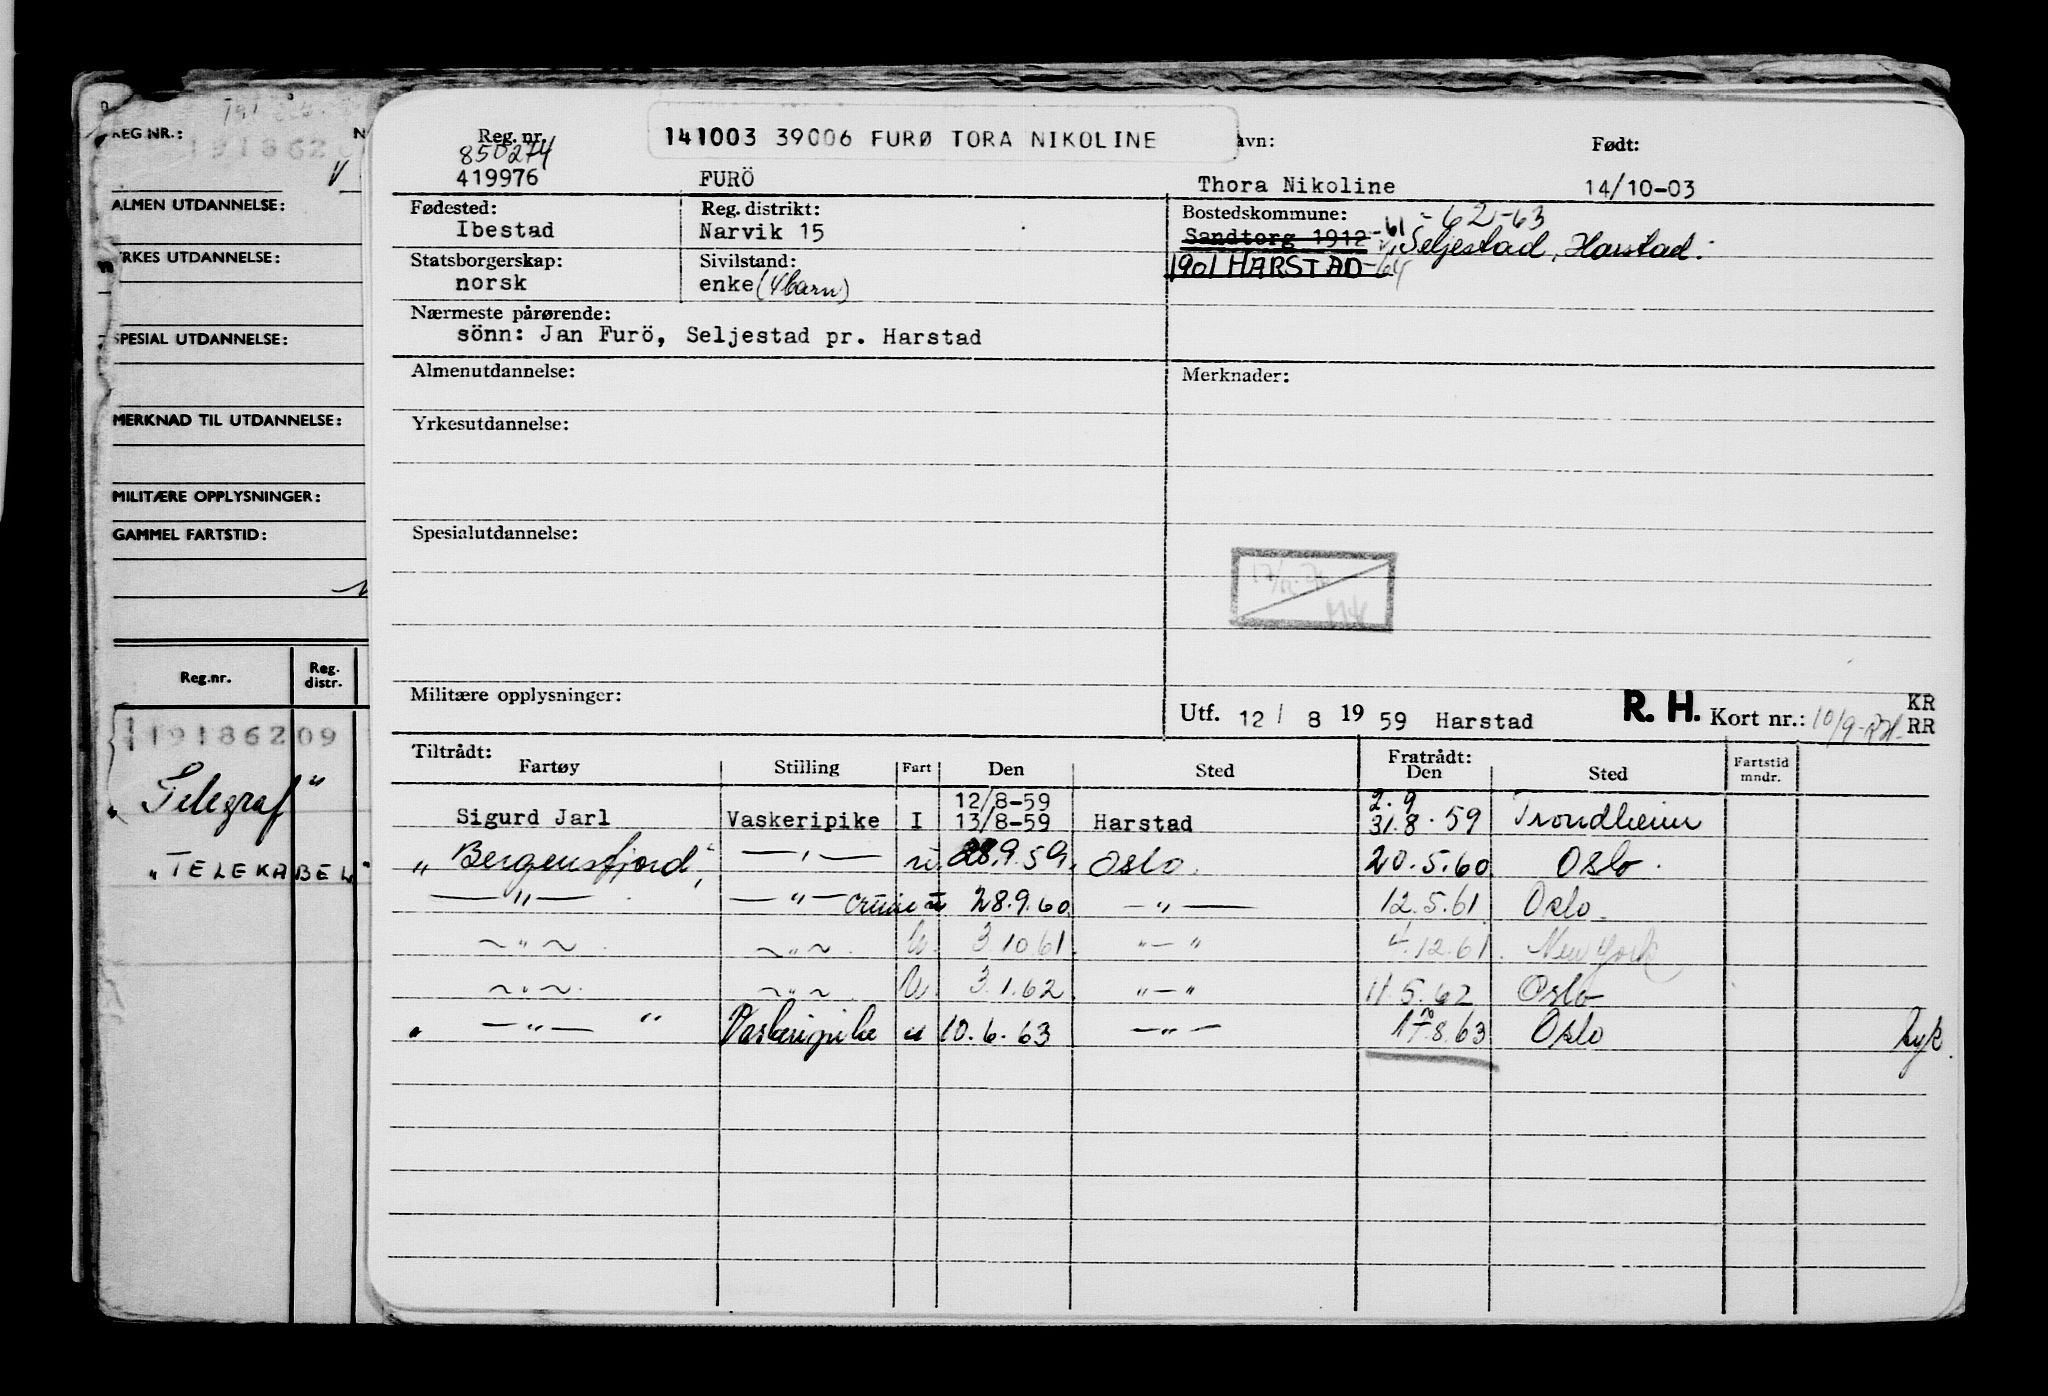 REG NR.:
191862
ALMEN UTDANNELSE:
YRKES UTDANNELSE:
SPESIAL UTDANNELSE:
MERKNAD TIL UTDANNELSE:
MILITÆRE OPPLYSNINGER:
GAMMEL FARTSTID:
Reg.nr. Reg. distr.
19186209
"Telegraf"
"TELEKABEL"
Reg. nr. 141003 39006 FURØ TORA NIKOLINE avn: Født:
850274
419976 FURÖ Thora Nikoline 14/10-03
Fødested: Reg. distrikt: Bostedskommune: -61 -62-63
Ibestad Narvik 15 Sandtorg 1912 Seljestad, Harstad.
Statsborgerskap: Sivilstand: 1901 HARSTAD-64
norsk enke (4 barn)
Nærmeste pårørende:
sönn: Jan Furö, Seljestad pr. Harstad
Almenutdannelse: Merknader:
Yrkesutdannelse:
Spesialutdannelse:
Militære opplysninger:
Utf. 12/ 8 19 59 Harstad R. H. Kort nr.: 10/9-RH- KR RR
Tiltrådt: Fratrådt:
Fartøy Stilling Fart Den Sted Den Sted Fartstid mndr.
12/8-59 2.9
Sigurd Jarl Vaskeripike I 13/8-59 Harstad 31.8.59 Trondheim
"Bergensfjord" —"— u 28.9.59. Oslo. 20.5.60 Oslo.
—"— —"— cruise u 28.9.60 —"— 12.5.61 Oslo.
~"~ ~"~ U. 3.10.61. "—" 4.12.61. New York
~"~ ~"~ U. 3.1.62. "—" 11.5.62 Oslo
" —"— " Vaskeripike u 10.6.63 —"— 17.8.63 Oslo syk.